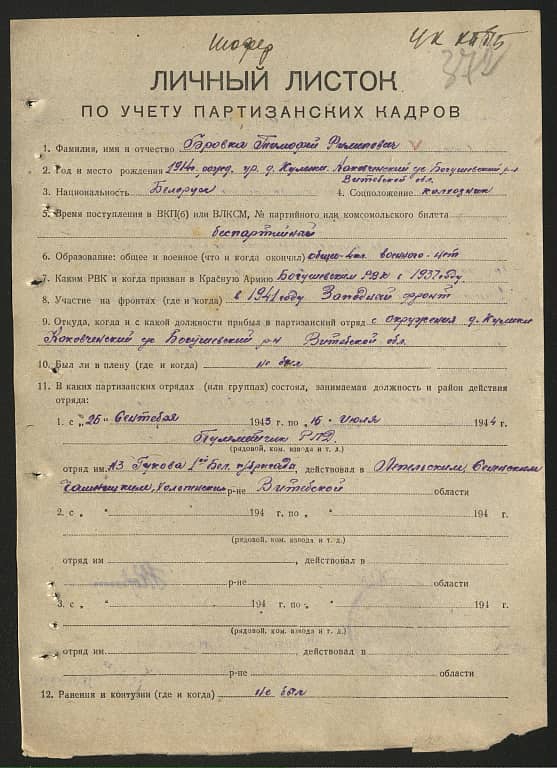 Шофер ЦК КПбБ
372
ЛИЧНЫЙ ЛИСТОК
ПО УЧЕТУ ПАРТИЗАНСКИХ КАДРОВ
1. Фамилия, имя и отчество Бровка Тимофей Филипович
2. Год и место рождения 1914 д. Кулики Коковченский с/с Богушевский р-н
Витебской обл.
3. Национальность Беларус 4. Соцположение колхозник
5. Время поступления в ВКП(б) или ВЛКСМ, № партийного или комсомольского билета
беспартийный
6. Образование: общее и военное (что и когда окончил) военного-нет
7. Каким РВК и когда призван в Красную Армию Богушевским РВК с 1937 году
8. Участие на фронтах (где и когда) в 1941 году Западный фронт
9. Откуда, когда и с какой должности прибыл в партизанский отряд с окружения д. Кулики
Коковченский с/с Богушевский р-н Витебской обл.
10. Был ли в плену (где и когда) не был
11. В каких партизанских отрядах (или группах) состоял, занимаемая должность и район действия
отряда:
1. с „26“ Сентября 1943 г. по „16“ Июля 1944 г.
Пулеметчик РПД
(рядовой, ком. взвода и т. д.)
отряд им. №3 Гукова 1ой Бел. п/бригада, действовал в Лепельским, Сененским
Чашницким, Холопенским р-не Витебской области
2. с „ “ 194 г. по „ “ 194 г.
(рядовой, ком. взвода и т. д.)
отряд им. действовал в
р-не области
3. с „ “ 194 г. по „ “ 194 г.
(рядовой, ком. взвода и т. д.)
отряд им. действовал в
р-не области
12. Ранения и контузии (где и когда) не был